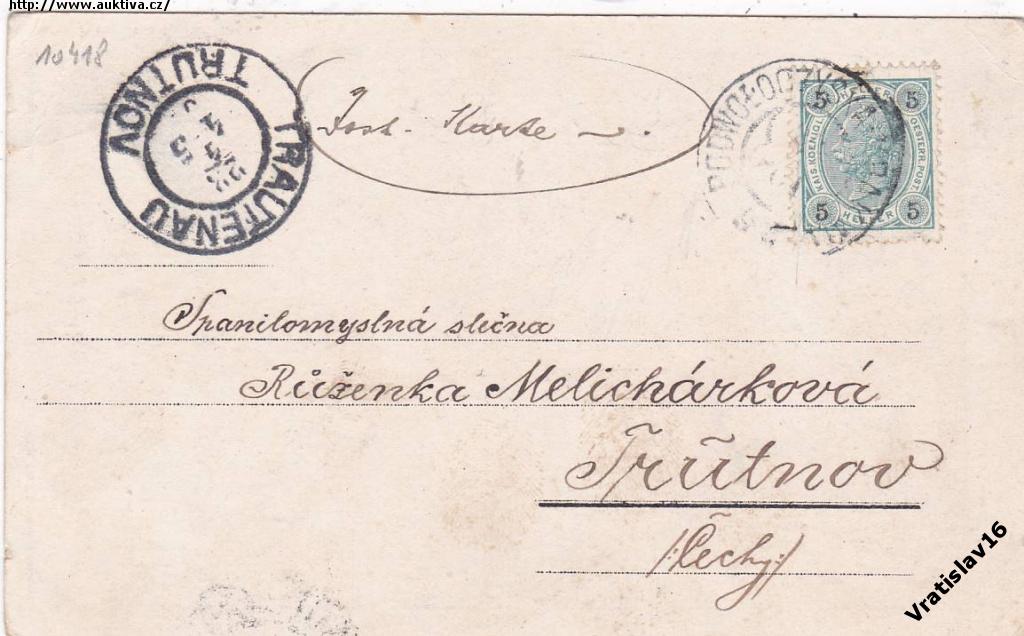 http://www.auktiva.cz/
10418
TRUTNOV
TRAUTENAU
Post-Karte
PODWOŁOCZYSKA
5 HELLER 5
KAIS. KOENIGL. OESTERR. POST.
5 HELLER 5
Spanilomyslná slečna
Růženka Melichárková
Trŭtnov
/:Čechy:/
Vratislav16